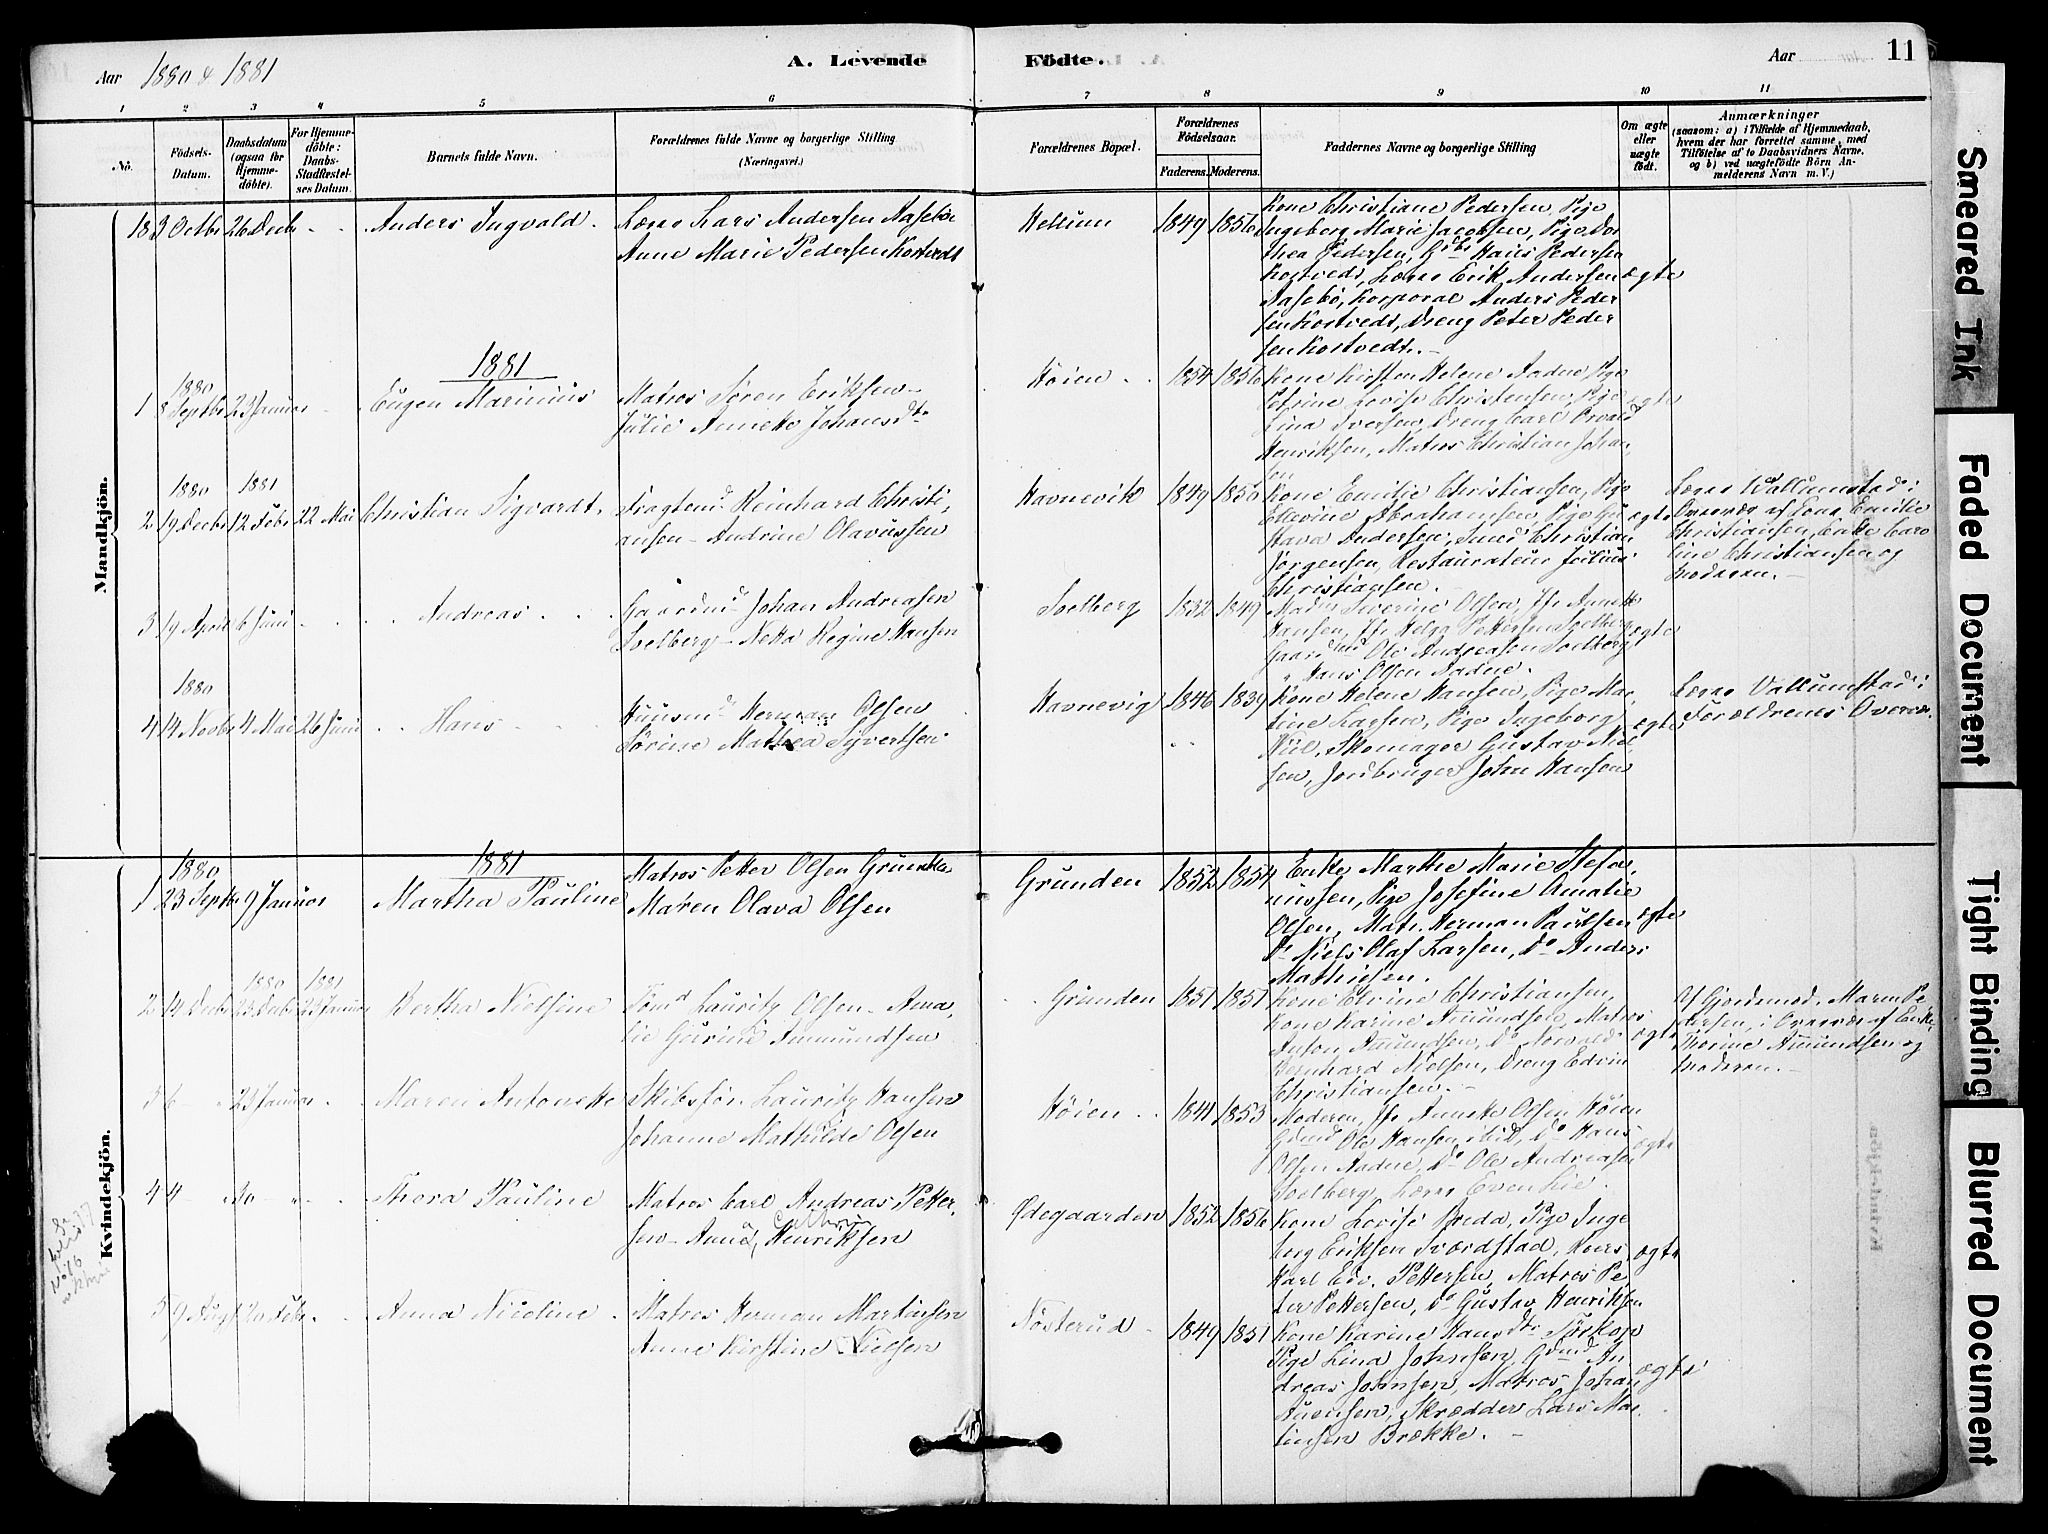 Aar 1880 & 1881
A. Levende Födte.
Aar
11
1 2 3 4 5 6 7 8 9 10 11
No.
Födsels-Datum.
Daabsdatum (ogsaa for Hjemmedöbte).
For Hjemmedöbte: Daabs-Stadfæstelses Datum.
Barnets fulde Navn.
Forældrenes fulde Navne og borgerlige Stilling
(Næringsvei.)
Forældrenes Bopæl.
Forældrenes Födselsaar.
Faderens. Moderens.
Faddernes Navne og borgerlige Stilling
Om ægte eller uægte födt.
Anmærkninger
(saasom: a) i Tilfælde af Hjemmedaab, hvem der har forrettet samme, med Tilföielse af to Daabsvidners Navne, og b) ved uægtefödte Börn Anmelderens Navn m. V.)
Mandkjön.
18 3 Octbr 26 Decbr - - Anders Ingvald.
Lars Andersen Aasebö
Anne Marie Pedersen Kostvedt
Hellum 1849 1856
Kone Christiane Pedersen, Pige
Ingeborg Marie Jacobsen, Pige Dor
thea Pedersen, Hans Pedersen
Kostvedt, Erik Andersen
Aasebö, Korporal Anders Peder
sen Kostvedt, Dreng Peter Peder
sen Kostvedt. -
ægte
1881
1 1880 8 Septbr 23 Januar - Eugen Marinius
Matros Sören Eriksen -
Julie Annette Johansdtr
Höien 1854 1856
Kone Kirsten Helene Aadne, Pige
Petrine Lovise Christensen, Pige
Lina Iversen, Dreng Carl Osvald
Henriksen, Matros Christian Johan
sen
ægte
2 1880 19 Decbr 1881 12 Febr 22 Mai Christian Sigvardt.
Fragtemd Reinhard Christi
ansen - Andrine Olavussen
Havnevik 1849 1850
Kone Emilie Christiansen, Pige
Ellevine Abrahamsen, Pige Gu
Andersen, Smed Christian
Jörgensen, Restaurateur Julius
Christiansen. -
ægte
Vallumstad i
Overvær af Kone Emilie
Christiansen, Enke Caro
line Christiansen og
Moderen. -
3 19 April 6 Juni - - Andreas
Gaardmd Johan Andreasen
Solberg - Netta Regine Hansen
Solberg 1832 1849
Madm Severine Olsen, Jfr Annette
Hansen, Jfr Helga Pettersen Solberg
Gaardmd Ole Andreasen Solberg
" Hans Olsen Aadne.
ægte
4 1880 14 Novbr 4 Mai 26 Juni Hans
Huusmd Herman Olsen
Sörine Mathea Syvertsen
Havnevig 1846 1839
Kone Helene Hansen, Pige Ma
tine Larsen, Pige Ingeborg
Niil, Skomager Gustav Niel
sen, Jordbruger John Hansen
ægte
Vallumstad i
Forældrenes Overvær.
Kvindekjön.
1881
1 1880 23 Septbr 9 Januar Martha Pauline
Matros Petter Olsen Grunden
Maren Olava Olsen
Grunden 1852 1854
Enke Marthe Marie Stefa
nussen, Pige Josefine Amalie
Olsen, Matr. Herman Paulsen
Do Niels Olaf Larsen, Do Anders
Mathiesen.
ægte
2 14 Decbr 1880 23 Decbr 1881 23 Januar Bertha Nielsine
Tömd Lauritz Olsen - Ama
lie Gurine Amundsen
Grunden 1851 1851
Kone Elvine Christiansen,
Kone Karine Amundsen, Matros
Anton Amundsen, Do Norvald
Bernhard Nielsen, Dreng Edvin
Christiansen. -
ægte
Af Gjordemod. Maren Pe
dersen, i Overvær af Enke
Thorine Amundsen og
Moderen. -
3 6 " 23 Januar - - Maren Antonette
Skibsför. Lauritz Hansen
Johanne Mathilde Olsen
Höien 1841 1853
Moderen, Jfr Annette Olsen Höien
Gdmd Ole Hansen ibid, Do Hans
Olsen Aadne, Do Ole Andreasen
Solberg, Even
ægte
4 4 - 30 - " - - Thora Pauline
Matros Carl Andreas Petter
sen - Anna Cathrine Henriksen
Ödegaarden 1852 1856
Kone Lovise Breda, Pige Inge
borg Eriksen Sværdstad,
Karl Edv. Pettersen, Matros Pe
ter Pettersen, Do Gustav Henriksen
ægte
5 9 Augt 20 Febr. - Anna Nicoline
Matros Herman Martinsen
Anne Kirstine Nielsen
Nösterud 1849 1851
Kone Karine Hansdtr Törkop
Pige Lina Johnsen, Gdmd An
dreas Johnsen, Matros Johan
Skrædder Lars Mar
tinsen Brække. -
ægte
Smeared Ink
Faded Document
Tight Binding
Blurred Document